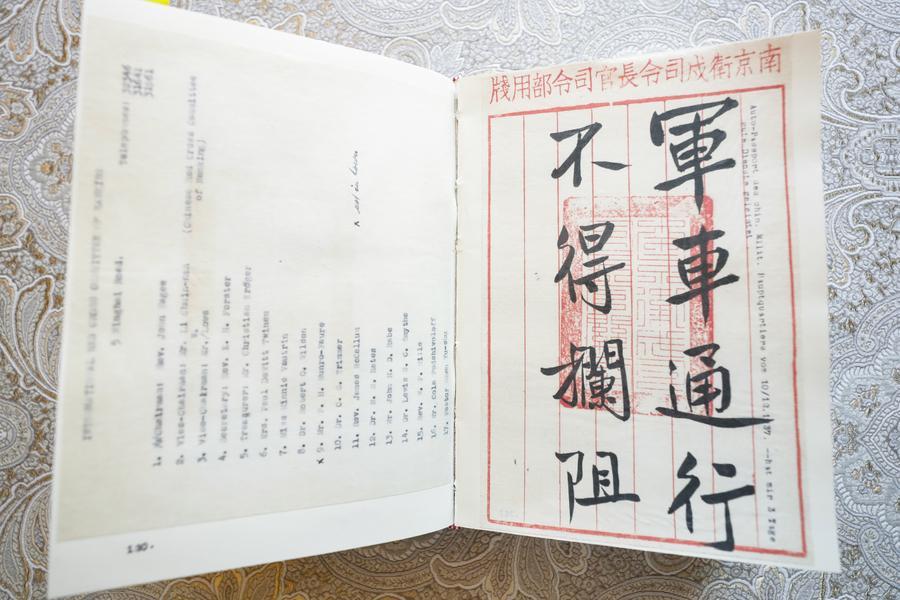 5 Ninghai Road.
Telephones:
1. Chairman: Rev. John Magee
2. Vice-Chairman: Mr. Li Chuin-nan
of Nanking)
3. Vice-Chairman: Mr. Lowe
4. Secretary: Rev. E. H. Forster
5. Treasurer: Mr. Christian Kröger
6. Mrs. Paul Dewitt Twinem
7. Miss Minnie Vautrin
8. Dr. Robert O. Wilson
x 9. Mr. P. H. Munro-Faure
10. Dr. C. S. Trimmer
11. Rev. James McCallum
12. Dr. M. S. Bates
13. Mr. John H. D. Rabe
14. Dr. Lewis S. C. Smythe
15. Rev. W. P. Mills
16. Mr. Cola Podshivoloff
x not in town
130.
南京衛戍司令長官司令部用牋
Auto-Passport des chin. Milit. Hauptquartiers vom 10/12.1937. --hat mir 3 Tage
gute Dienste geleistet
軍車通行
不得攔阻